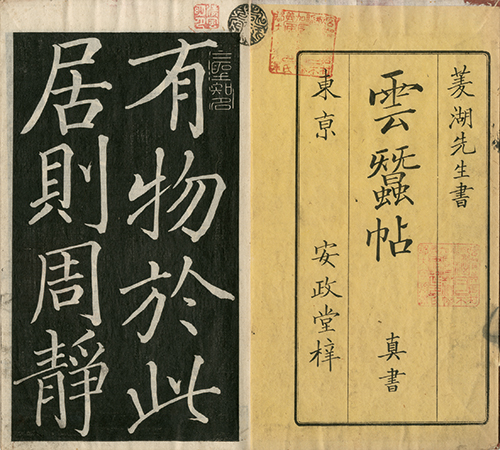 菱湖先生書
雲蠶帖
真書
東京
安政堂梓
有物於此
居則周靜